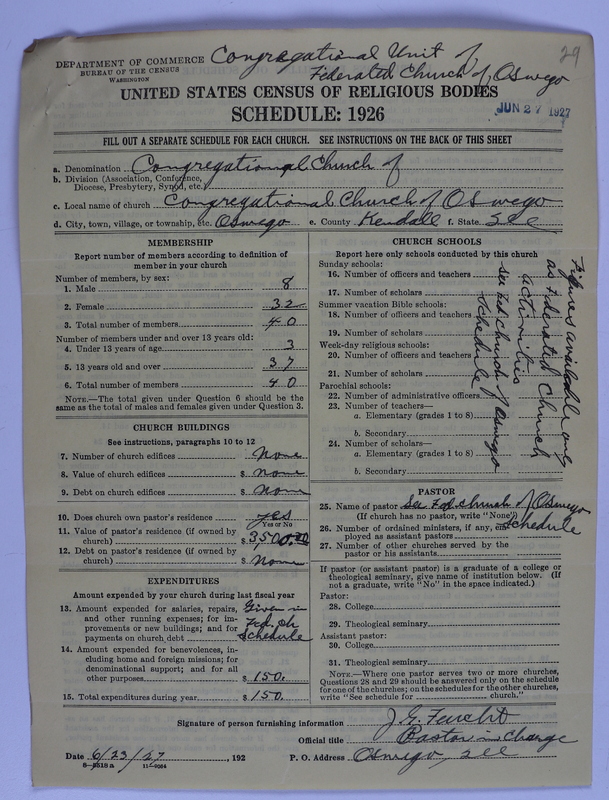 DEPARTMENT OF COMMERCE
BUREAU OF THE CENSUS
WASHINGTON
Congregational Unit of
Federated Church of Oswego
29
UNITED STATES CENSUS OF RELIGIOUS BODIES
JUN 27 1927
SCHEDULE: 1926
FILL OUT A SEPARATE SCHEDULE FOR EACH CHURCH. SEE INSTRUCTIONS ON THE BACK OF THIS SHEET
a. Denomination Congregational Church of
b. Division (Association, Conference, Diocese, Presbytery, Synod, etc.)
c. Local name of church Congregational Church of Oswego
d. City, town, village, or township, etc. Oswego e. County Kendall f. State Ill
MEMBERSHIP
Report number of members according to definition of
member in your church
Number of members, by sex:
1. Male 8
2. Female 32
3. Total number of members 40
Number of members under and over 13 years old:
4. Under 13 years of age 3
5. 13 years old and over 37
6. Total number of members 40
NOTE.—The total given under Question 6 should be
same as the total of males and females given under Question 3.
CHURCH BUILDINGS
See instructions, paragraphs 10 to 12
7. Number of church edifices None
8. Value of church edifices $ None
9. Debt on church edifices $ None
10. Does church own pastor's residence yes
Yes or No
11. Value of pastor's residence (if owned by
church) $ 3500.00
12. Debt on pastor's residence (if owned by
church) $ None
EXPENDITURES
Amount expended by your church during last fiscal year
13. Amount expended for salaries, repairs,
and other running expenses; for im-
provements or new buildings; and for
payments on church debt
Given in
Fed. Ch
Schedule
14. Amount expended for benevolences, in-
cluding home and foreign missions; for
denominational support; and for all
other purposes $ 150.
15. Total expenditures during year $ 150.
CHURCH SCHOOLS
Report here only schools conducted by this church
Sunday schools:
16. Number of officers and teachers
17. Number of scholars
Summer vacation Bible schools:
18. Number of officers and teachers
19. Number of scholars
Week-day religious schools:
20. Number of officers and teachers
21. Number of scholars
Parochial schools:
22. Number of administrative officers
23. Number of teachers—
a. Elementary (grades 1 to 8)
b. Secondary
24. Number of scholars—
a. Elementary (grades 1 to 8)
b. Secondary
Figures available only
as Federated Church
activities
See Fed church of Oswego
Schedule
PASTOR
25. Name of pastor See Fed. Church of Oswego
(If church has no pastor, write "None") Schedule
26. Number of ordained ministers, if any, em-
ployed as assistant pastors
27. Number of other churches served by the
pastor or his assistants
If pastor (or assistant pastor) is a graduate of a college or
theological seminary, give name of institution below. (If
not a graduate, write "No" in the space indicated.)
Pastor:
28. College
29. Theological seminary
Assistant pastor:
30. College
31. Theological seminary
NOTE.—Where one pastor serves two or more churches,
Questions 28 and 29 should be answered only on the schedule
for one of the churches; on the schedules for the other churches,
write "See schedule for church."
Signature of person furnishing information J. G. Feucht
Official title Pastor in Charge
Date 6/23/27, 192 P. O. Address Oswego, Ill